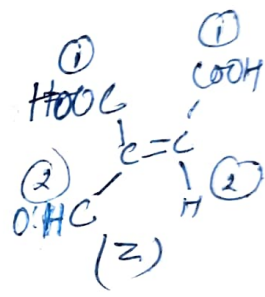 ① ①
HOOC COOH
C=C
② OHC H ②
(Z)